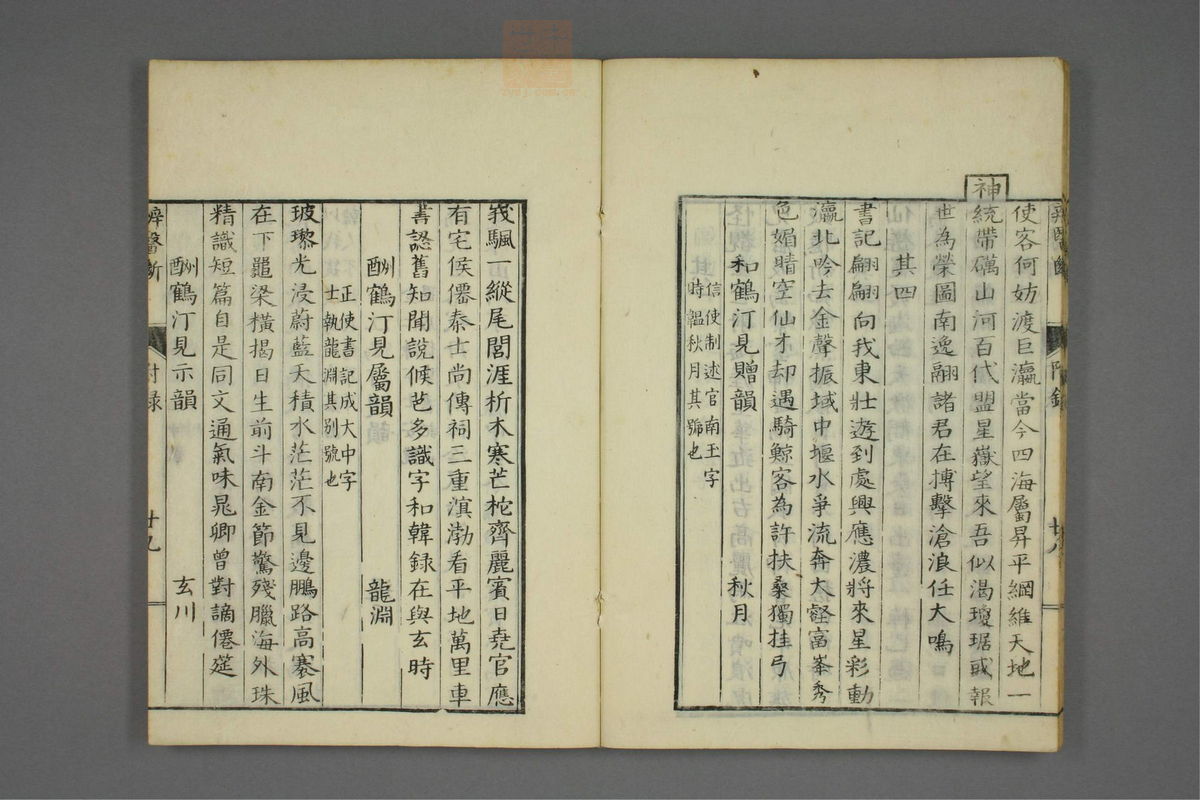 使客何妨渡巨瀛當今四海屬昇平綱維天地一
神
統帶礪山河百代盟星嶽望來吾似渴瓊琚或報
世為榮圖南逸翮諸君在搏擊滄浪任大鳴
其四
書記翩翩向我東壯遊到處興應濃將來星彩動
瀛北吟去金聲振域中堰水爭流奔大壑富峯秀
色媚晴空仙才却遇騎鯨客為許扶桑獨挂弓
和鶴汀見贈韻 秋月
信使制述官南玉字
時韞秋月其號也
附錄
廿八
峩颿一縱尾閭涯析木寒芒柁齊麗賓日堯官應
有宅侯僊秦士尚傳祠三重滇渤看平地萬里車
書認舊知聞說候芭多識字和韓録在與玄時
酬鶴汀見屬韻 龍淵
正使書記成大中字
士執龍淵其別號也
玻瓈光浸蔚藍天積水茫茫不見邊鵬路高褰風
在下鼉梁橫揭日生前斗南金節驚殘臘海外珠
精識短篇自是同文通氣味晁卿曾對謫僊筵
酬鶴汀見示韻 玄川
辨醫斷
附録
廿九